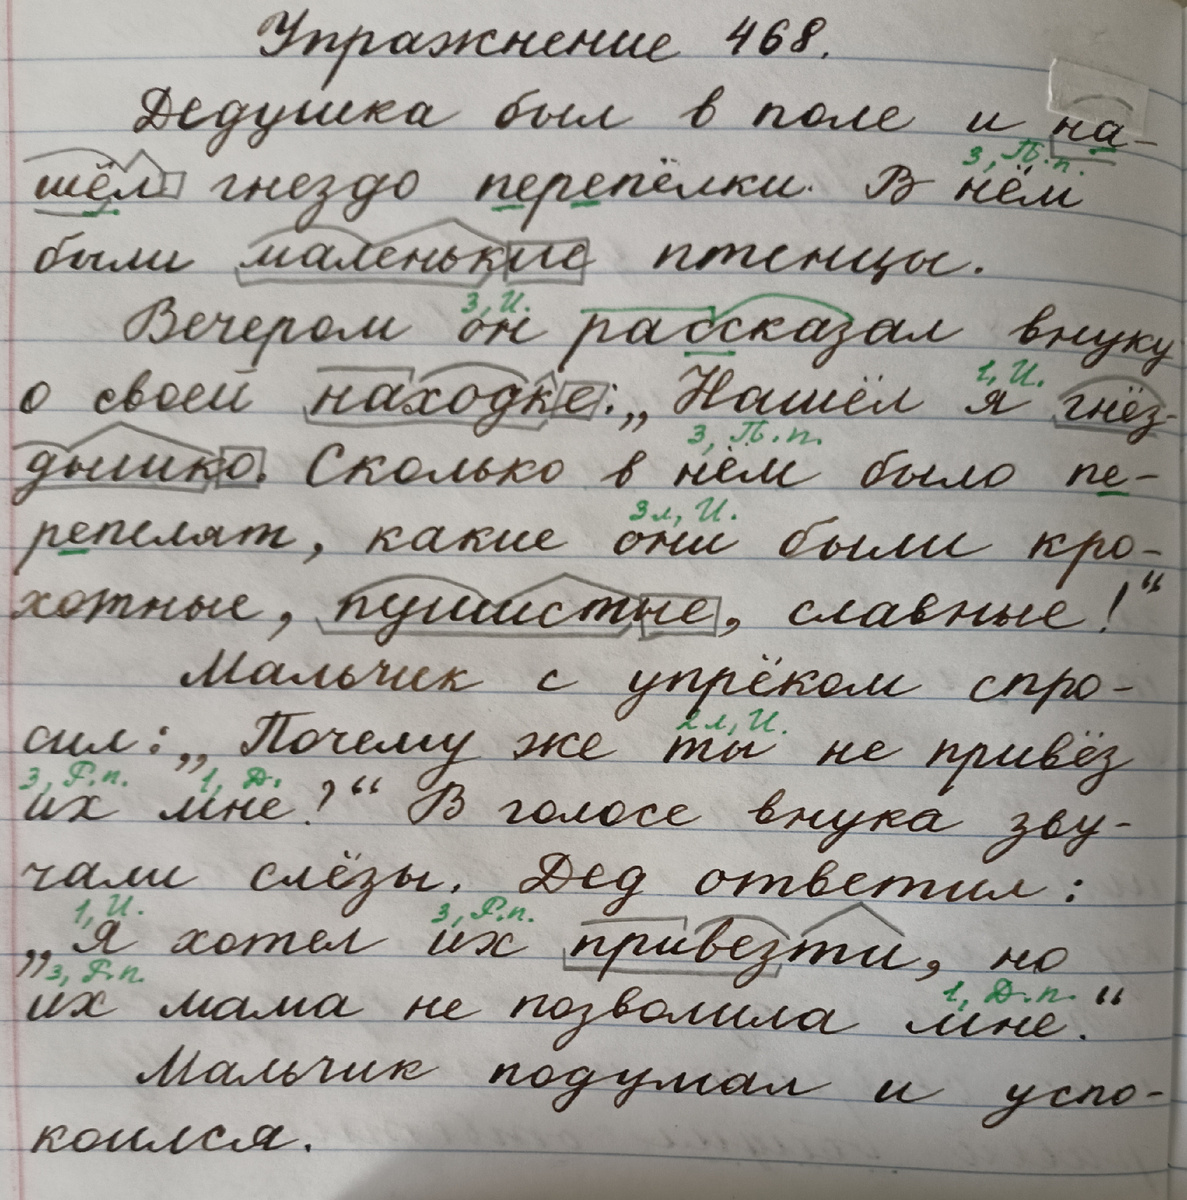 Упражнение 468.
Дедушка был в поле и на-
3, П.п.
шёл гнездо перепёлки. В нём
были маленькие птенцы.
3, И.
Вечером он рассказал внуку
1, И.
о своей находке: „Нашёл я гнёз-
3, П.п.
дышко. Сколько в нём было пе-
3л, И.
репелят, какие они были кро-
хотные, пушистые, славные!“
Мальчик с упрёком спро-
2л, И.
сил: „Почему же ты не привёз
3, Р.п. 1, Д.
их мне?“ В голосе внука зву-
чали слёзы. Дед ответил:
1, И. 3, Р.п.
„Я хотел их привезти, но
3, Р.п. 1, Д.п.
их мама не позволила мне.“
Мальчик подумал и успо-
коился.